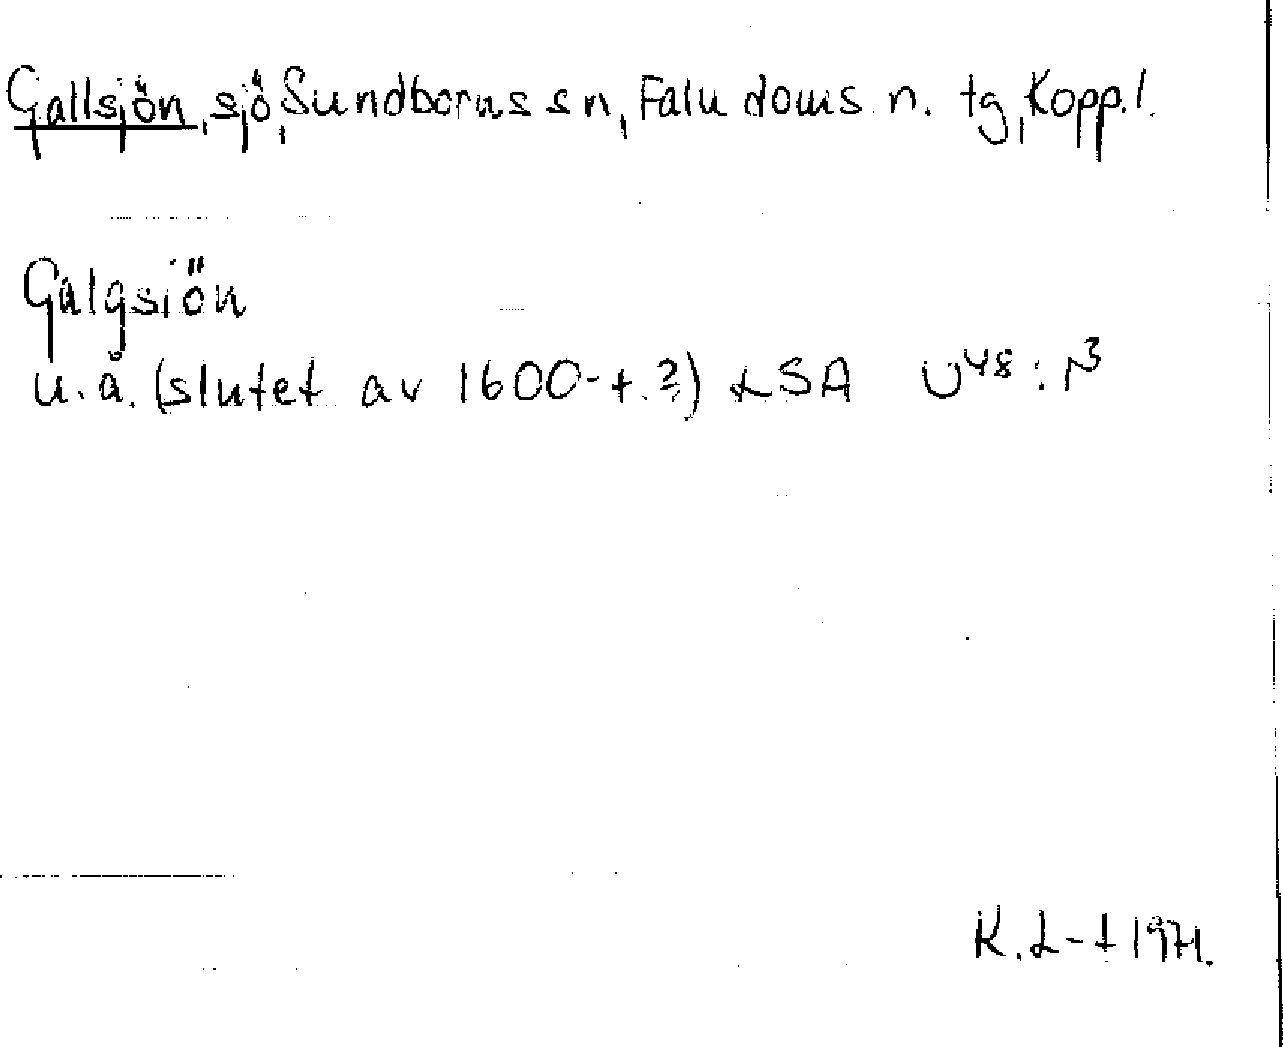 Gallsjön, sjö, Sundborns sn, Falu doms. n. tg, Kopp. l.
Galgsiön
u.å. (slutet av 1600-t.?) LSA U48:N3
K.L-t 1971.